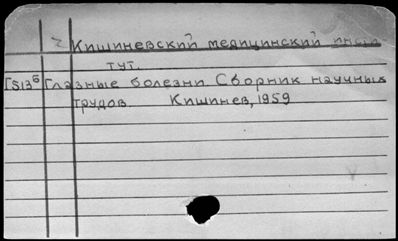 Кишиневский медицинский инсти
тут.
Глазные болезни. Сборник научных
трудов. Кишинев, 1959